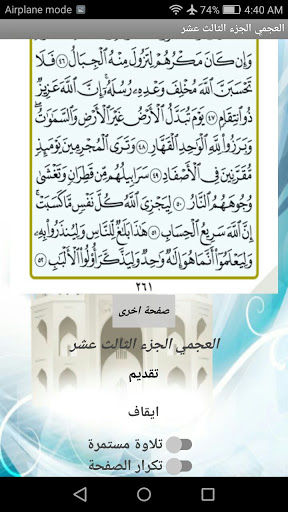 Airplane mode 4:40 AM
العجمي الجزء الثالث عشر
وَإِن كَانَ مَكْرُهُمْ لِتَزُولَ مِنْهُ الْجِبَالُ ٤٦ فَلَا
تَحْسَبَنَّ اللَّهَ مُخْلِفَ وَعْدِهِ رُسُلَهُ إِنَّ اللَّهَ عَزِيزٌ
ذُو انتِقَامٍ ٤٧ يَوْمَ تُبَدَّلُ الْأَرْضُ غَيْرَ الْأَرْضِ وَالسَّمَاوَاتُ
وَبَرَزُوا لِلَّهِ الْوَاحِدِ الْقَهَّارِ ٤٨ وَتَرَى الْمُجْرِمِينَ يَوْمَئِذٍ
مُّقَرَّنِينَ فِي الْأَصْفَادِ ٤٩ سَرَابِيلُهُم مِّن قَطِرَانٍ وَتَغْشَىٰ
وُجُوهَهُمُ النَّارُ ٥٠ لِيَجْزِيَ اللَّهُ كُلَّ نَفْسٍ مَّا كَسَبَتْ
إِنَّ اللَّهَ سَرِيعُ الْحِسَابِ ٥١ هَٰذَا بَلَاغٌ لِّلنَّاسِ وَلِيُنذَرُوا بِهِ
وَلِيَعْلَمُوا أَنَّمَا هُوَ إِلَٰهٌ وَاحِدٌ وَلِيَذَّكَّرَ أُولُو الْأَلْبَابِ ٥٢
٢٦١
صفحة اخرى
العجمي الجزء الثالث عشر
تقديم
ايقاف
تلاوة مستمرة
تكرار الصفحة